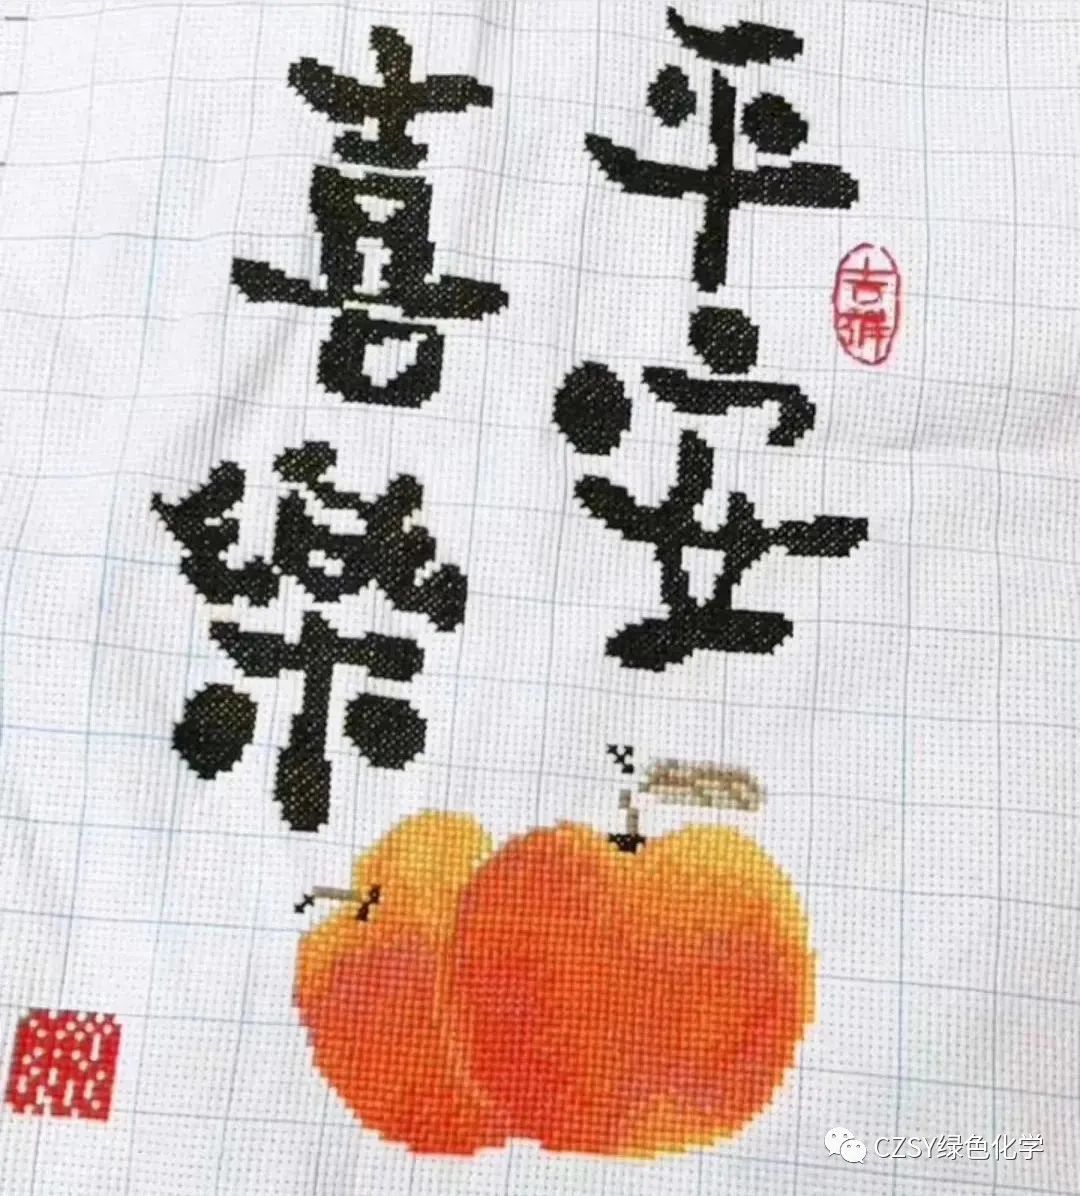 平安
喜樂
吉祥
CZSY绿色化学